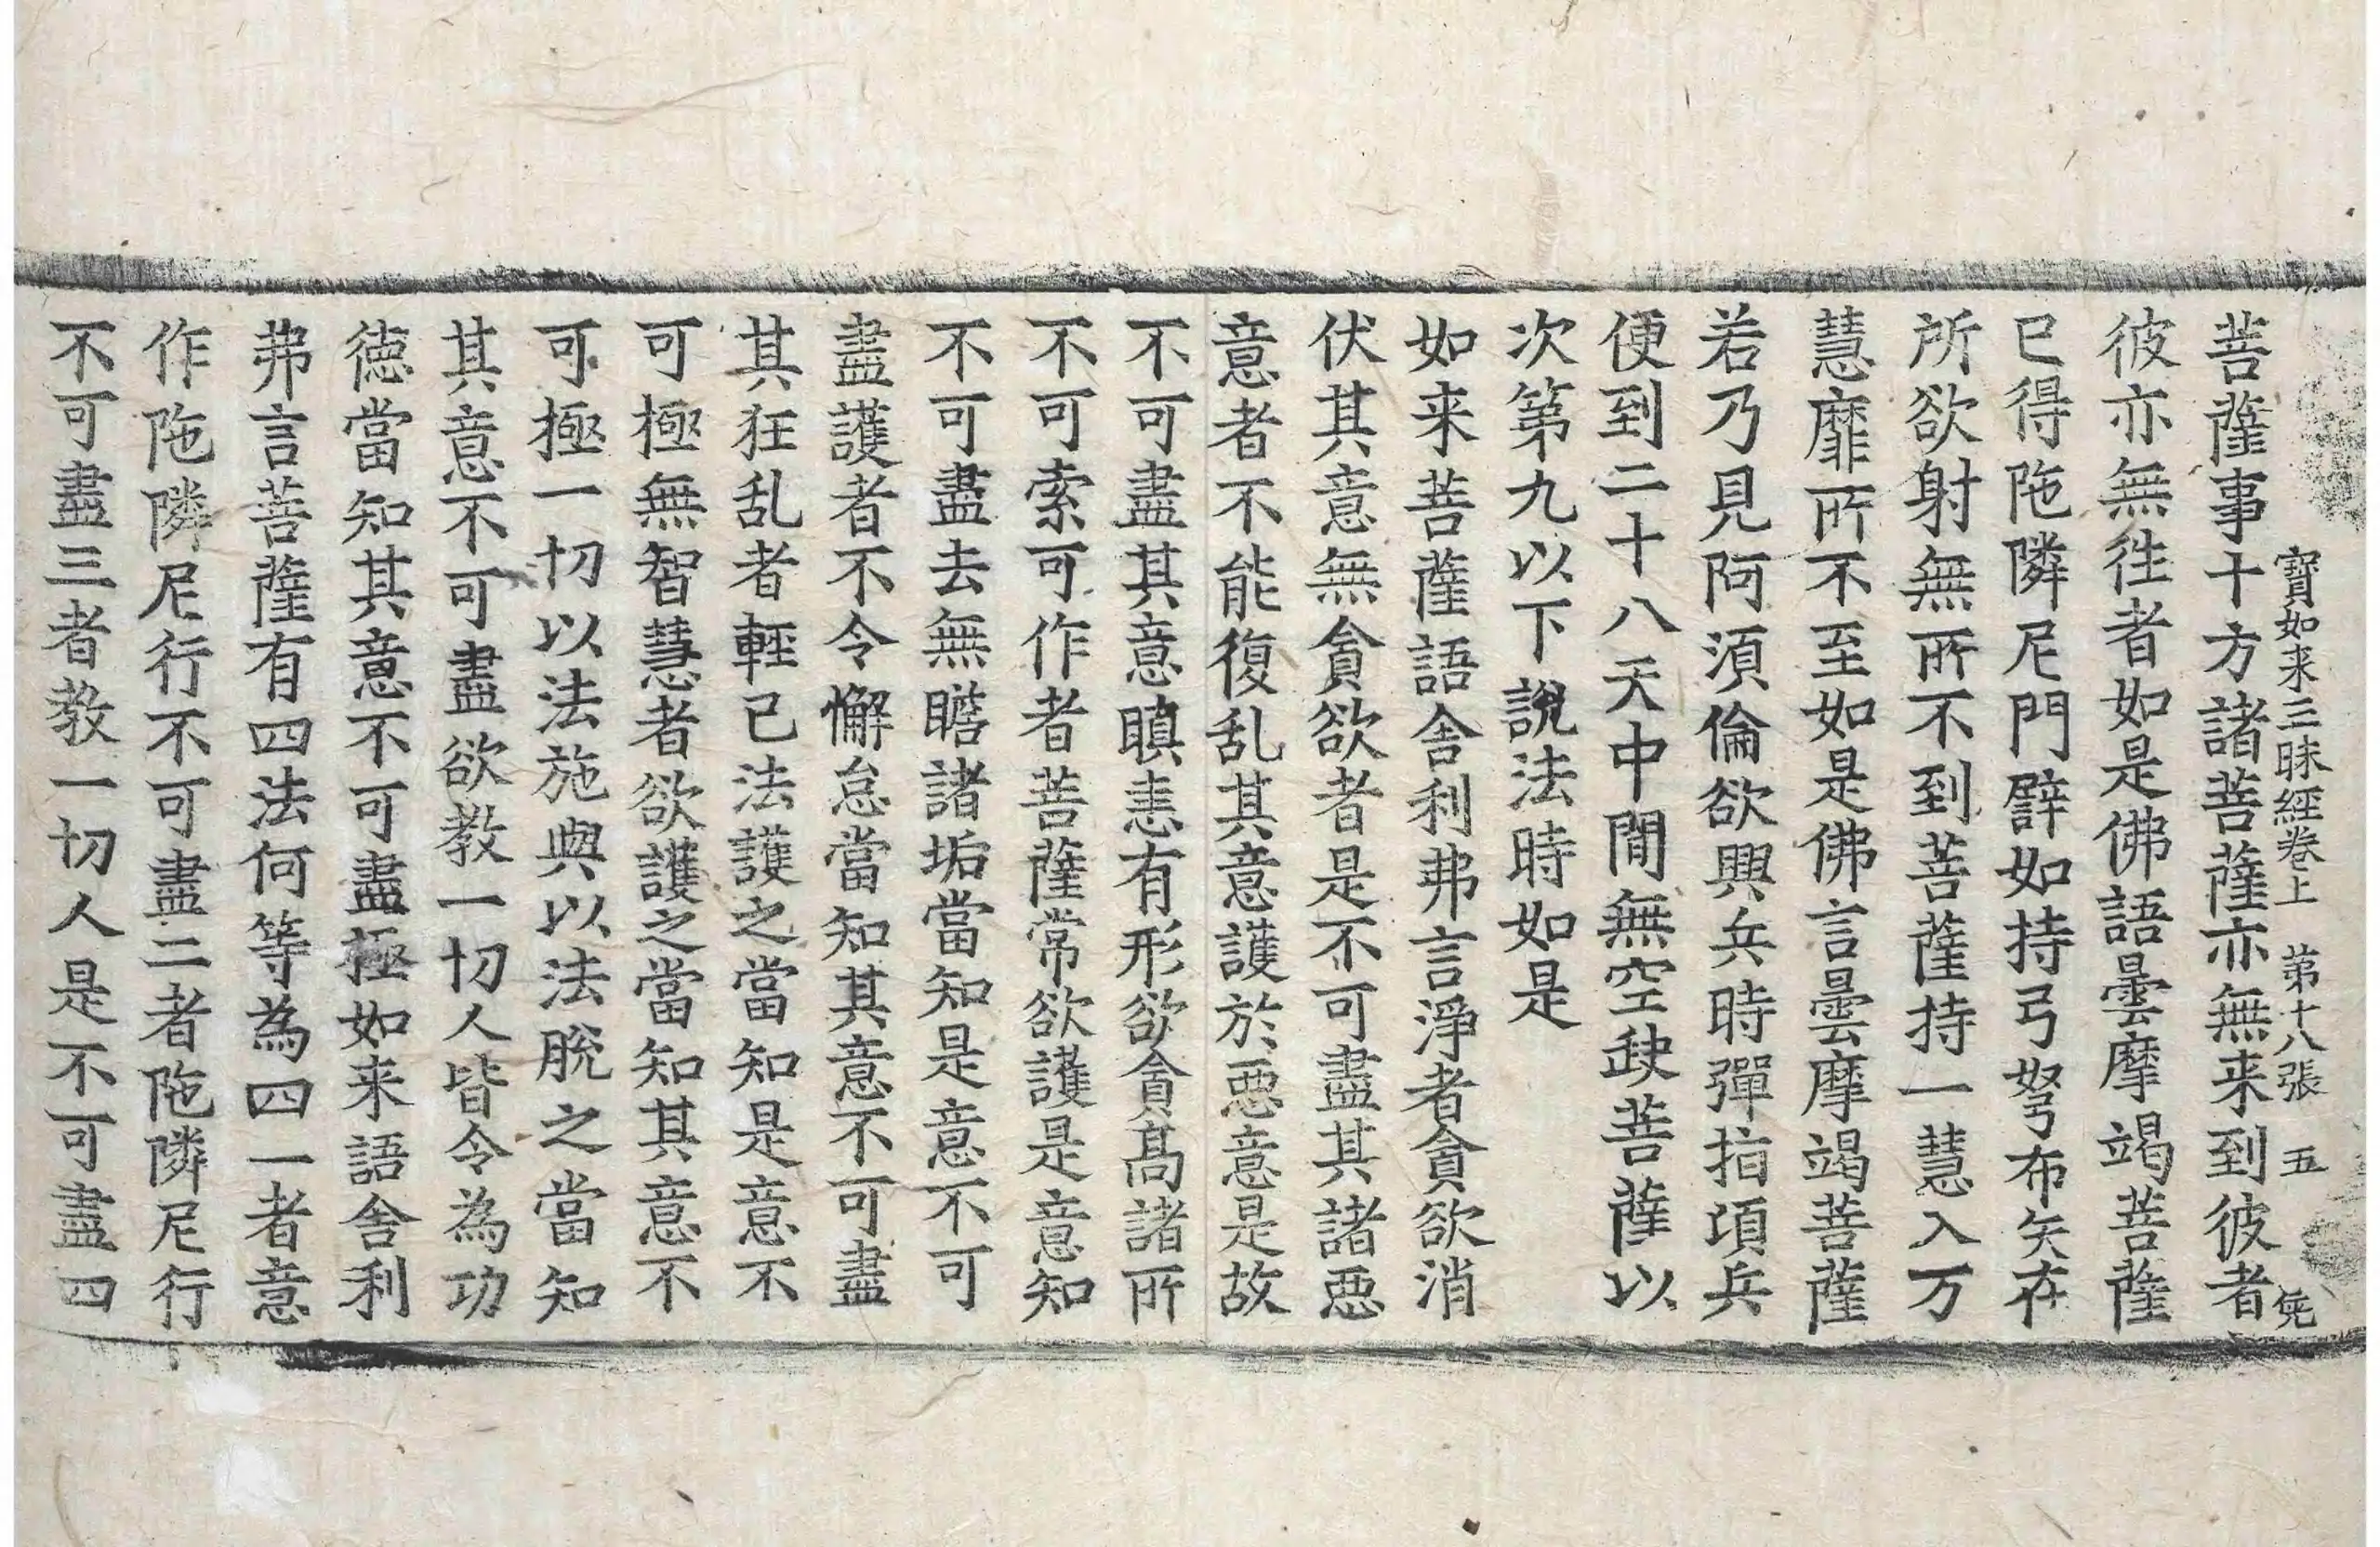 寶如来三昧經卷上　第十八張　五
菩薩事十方諸菩薩亦無来到彼者
彼亦無徃者如是佛語曇摩竭菩薩
已得陁隣尼門譬如持弓弩布矢在
所欲射無所不到菩薩持一慧入万
慧靡所不至如是佛言曇摩竭菩薩
若乃見阿須倫欲興兵時彈指項兵
便到二十八天中間無空缺菩薩以
次第九以下說法時如是
如来菩薩語舎利弗言淨者貪欲消
伏其意無貪欲者是不可盡其諸惡
意者不能復乱其意護於惡意是故
不可盡其意瞋恚有形欲貪髙諸所
不可索可作者菩薩常欲護是意知
不可盡去無瞻諸垢當知是意不可
盡護者不令懈怠當知其意不可盡
其狂乱者輕已法護之當知是意不
可極無智慧者欲護之當知其意不
可極一切以法施與以法脫之當知
其意不可盡欲教一切人皆令為功
德當知其意不可盡極如来語舎利
弗言菩薩有四法何等為四一者意
作陁隣尼行不可盡二者陁隣尼行
不可盡三者教一切人是不可盡四